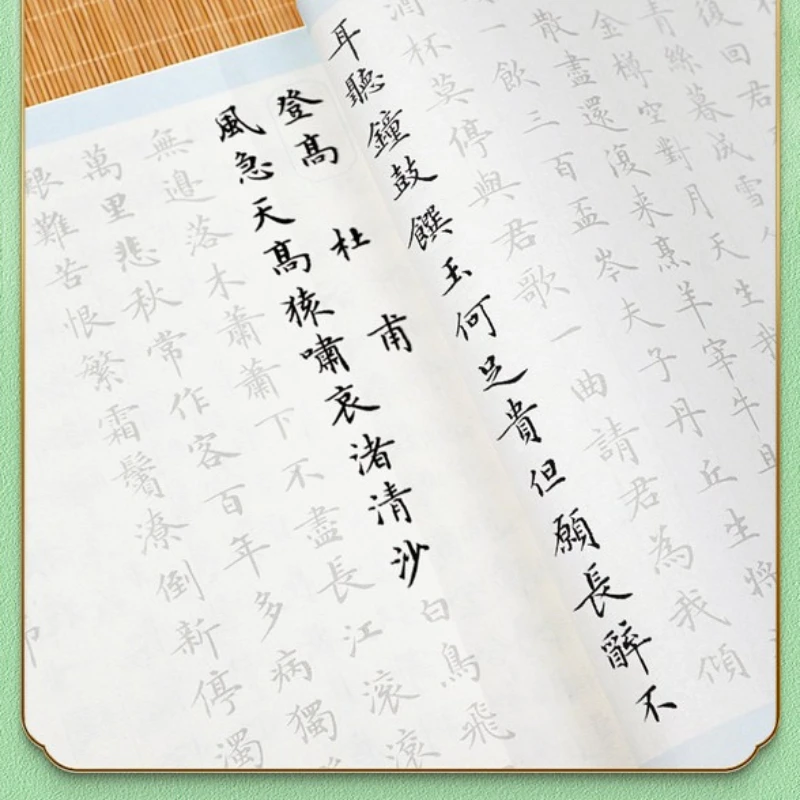 復回君
青絲暮成雪人
金樽空對月天生我
散盡還復来烹羊宰牛且
一飲三百盃岑夫子丹丘生將
杯莫停與君歌一曲請君為我傾
耳聽鐘鼓饌玉何足貴但願長辭不
登高 杜甫
風急天高猿嘯哀渚清沙白鳥飛
無邊落木蕭蕭下不盡長江滾滾
萬里悲秋常作客百年多病獨
艱難苦恨繁霜鬢潦倒新停濁